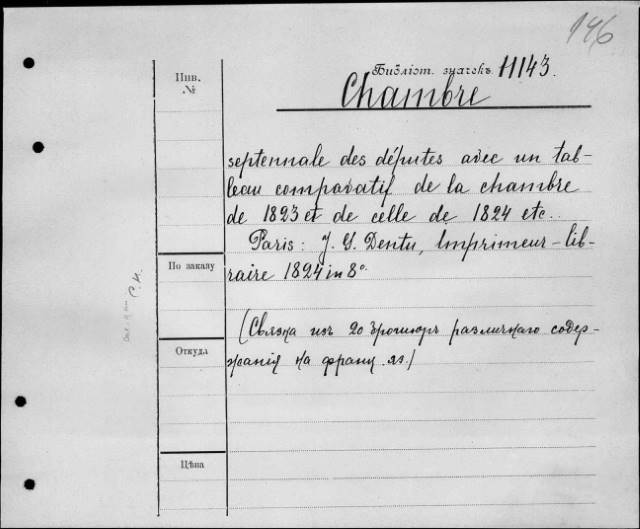 146
Инв.
№
Библіот. значекъ 11143.
Chambre
septennale des députes avec un tab-
leau comparatif de la chambre
de 1823 et de celle de 1824 etc.
Paris: J. G. Dentu, Imprimeur-lib-
raire 1824 in 8º.
По заказу
(Связка изъ 20 брошюръ различнаго содер-
жанія на франц. яз.)
Откуда
Цѣна